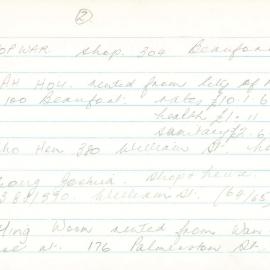 ②
OP WAR shop. 304 Beaufort
AH HOU. rented from City of
100 Beaufort. rates £10.1.6
health £1.11
sanitary £2.6
Ho Hen 380 William St.
Joshua. Shop & house.
388/390. William St. (64/65)
Hing Woon rented from Wan
at. 176 Palmerston St.